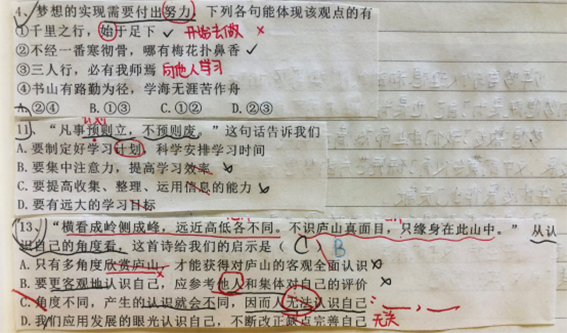 4、梦想的实现需要付出努力。下列各句能体现该观点的有
①千里之行，始于足下 ✓ 开始去做 ×
②不经一番寒彻骨，哪有梅花扑鼻香 ✓
③三人行，必有我师焉 向他人学习
④书山有路勤为径，学海无涯苦作舟
A. ②④ B. ①③ C. ①② D. ②③
计划
11、“凡事预则立，不预则废。”这句话告诉我们
A. 要制定好学习计划，科学安排学习时间
B. 要集中注意力，提高学习效率
C. 要提高收集、整理、运用信息的能力
D. 要有远大的学习目标
13、“横看成岭侧成峰，远近高低各不同。不识庐山真面目，只缘身在此山中。”从认
识自己的角度看，这首诗给我们的启示是（ C ）B
A. 只有多角度欣赏庐山，才能获得对庐山的客观全面认识
B. 要更客观地认识自己，应参考他人和集体对自己的评价
C. 角度不同，产生的认识就会不同，因而人无法认识自己
D. 我们应用发展的眼光认识自己，不断改正缺点完善自己 无关